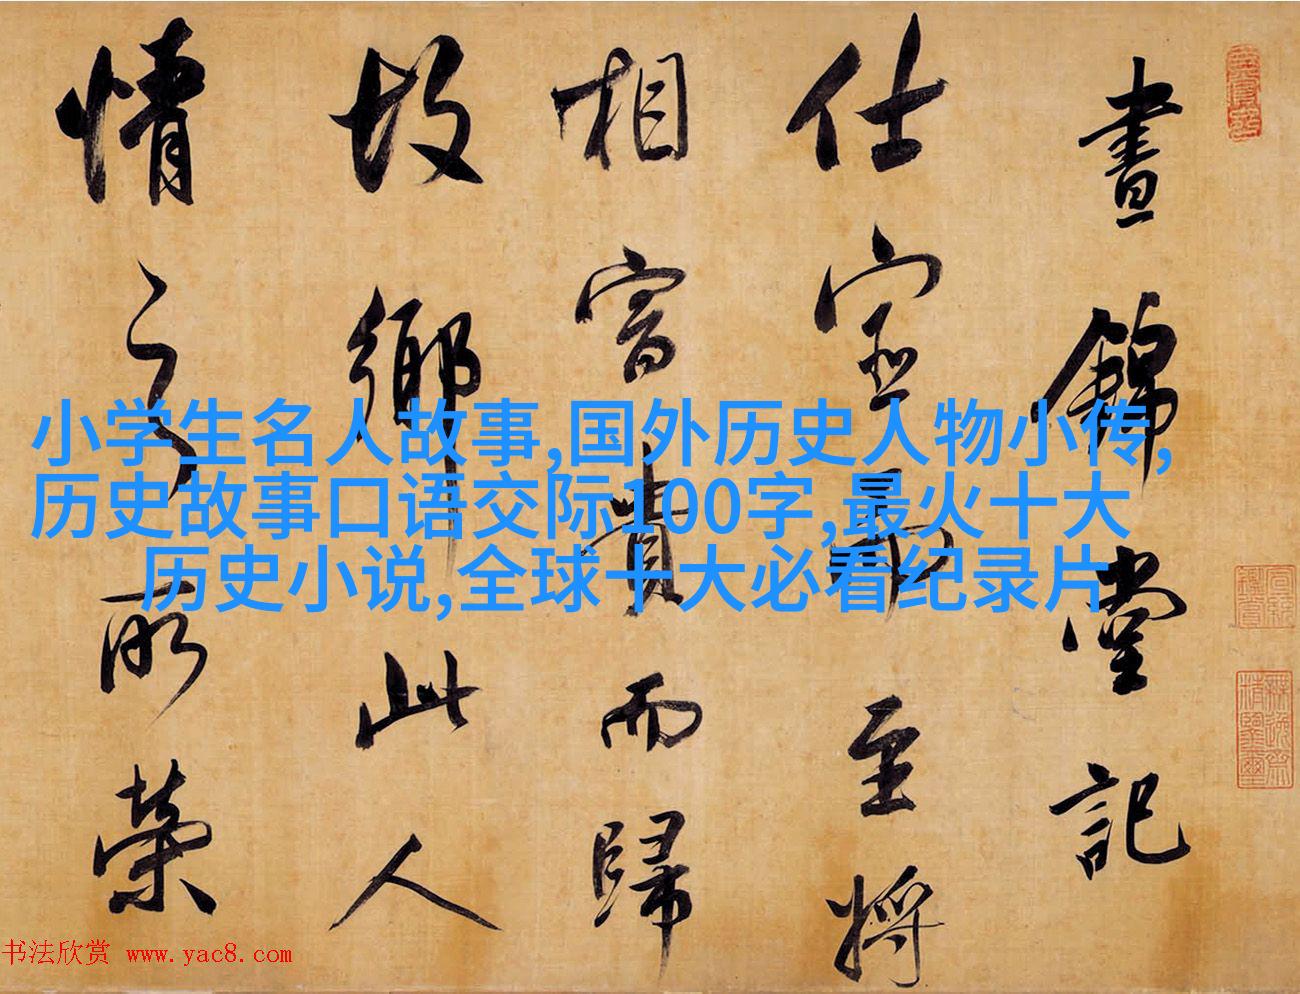 晝錦堂記
仕宦而至將
相富貴而歸
故鄉此人
情之所榮
小学生名人故事,国外历史人物小传,
历史故事口语交际100字,最火十大
历史小说,全球十大必看纪录片
书法欣赏 www.yac8.com